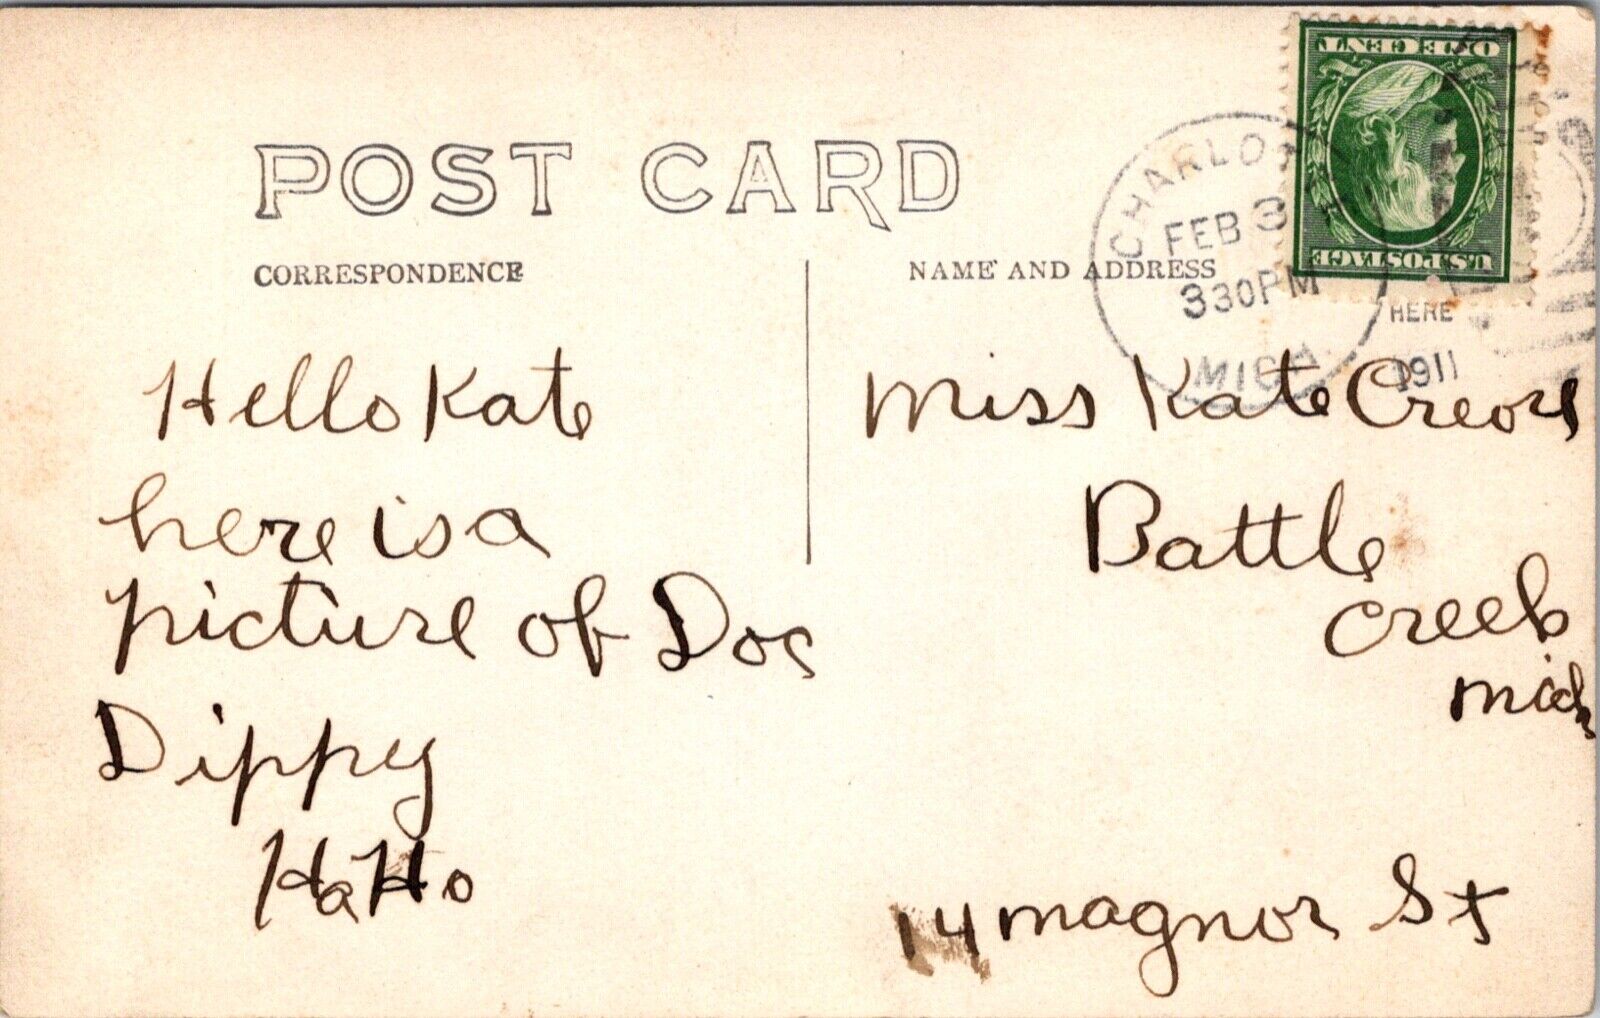 POST CARD
CORRESPONDENCE
NAME AND ADDRESS
U.S. POSTAGE
ONE CENT
CHARLOTTE
FEB 3
330PM
MICH.
HERE
1911
Hello Kate
here is a
picture of Doc
Dippy
Ha Ho
Miss Kate
Battle
Creek
Mich
14 magnor St